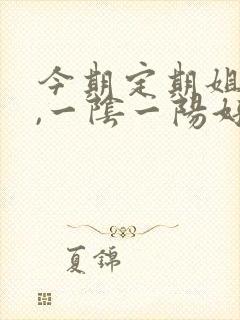 今期定期姐
,一陰一陽好
夏錦